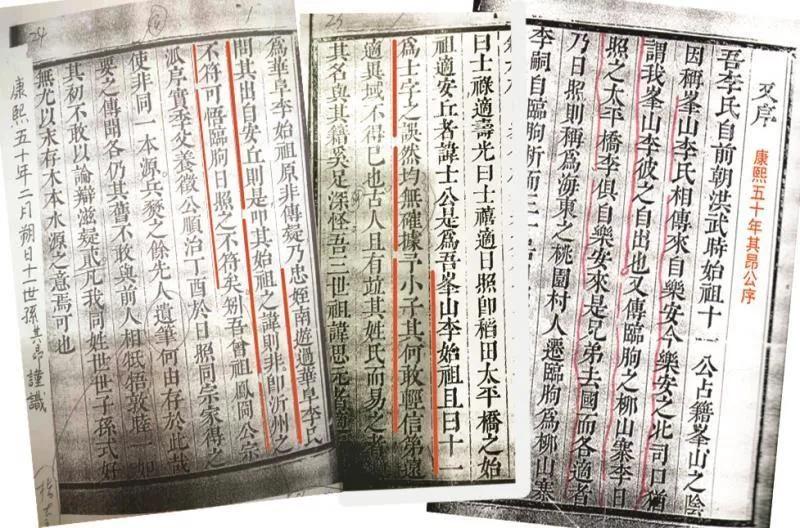 又序
康熙五十年其昂公序
吾李氏自前朝洪武時始祖十一公占籍峯山之陰
因稱峯山李氏相傳來自樂安今樂安之北司口猶
謂我峯山李彼之自出也又傳臨朐之柳山寨李日
照之太平橋李俱自樂安來是兄弟去國而各適者
乃日照則稱爲海東之桃園村人遷臨朐爲柳山寨
李嗣自臨朐析而三
25
曰士祿適壽光曰士禧適日照卽稻田太平橋之始
祖適安丘者諱士公是爲吾峯山李始祖且曰十一
爲士字之誤然均無確據予小子其何敢輕信第遠
適異域不得已也古人且有竝其姓氏而易之者
其名與其籍奚足深怪吾三世祖諱思元者
24
爲華阜李始祖原非傳疑乃忠姪南遊過華阜李氏
問其出自安丘則是叩其始祖之諱則非卽沂州之
不符可悟臨朐日照之不符矣矧吾曾祖鳳岡公宗
派序實季父養徵公順治丁酉於日照同宗家得之
使非同一本源兵燹之餘先人遺筆何由存於此哉
要之傳聞各仍其舊不敢與前人相牴牾敦睦一如
其初不敢以論辯滋疑貳凡我同姓世世子孫式好
無尤以末存木本水源之意焉可也
康熙五十年二月朔日十一世孫其昂謹識